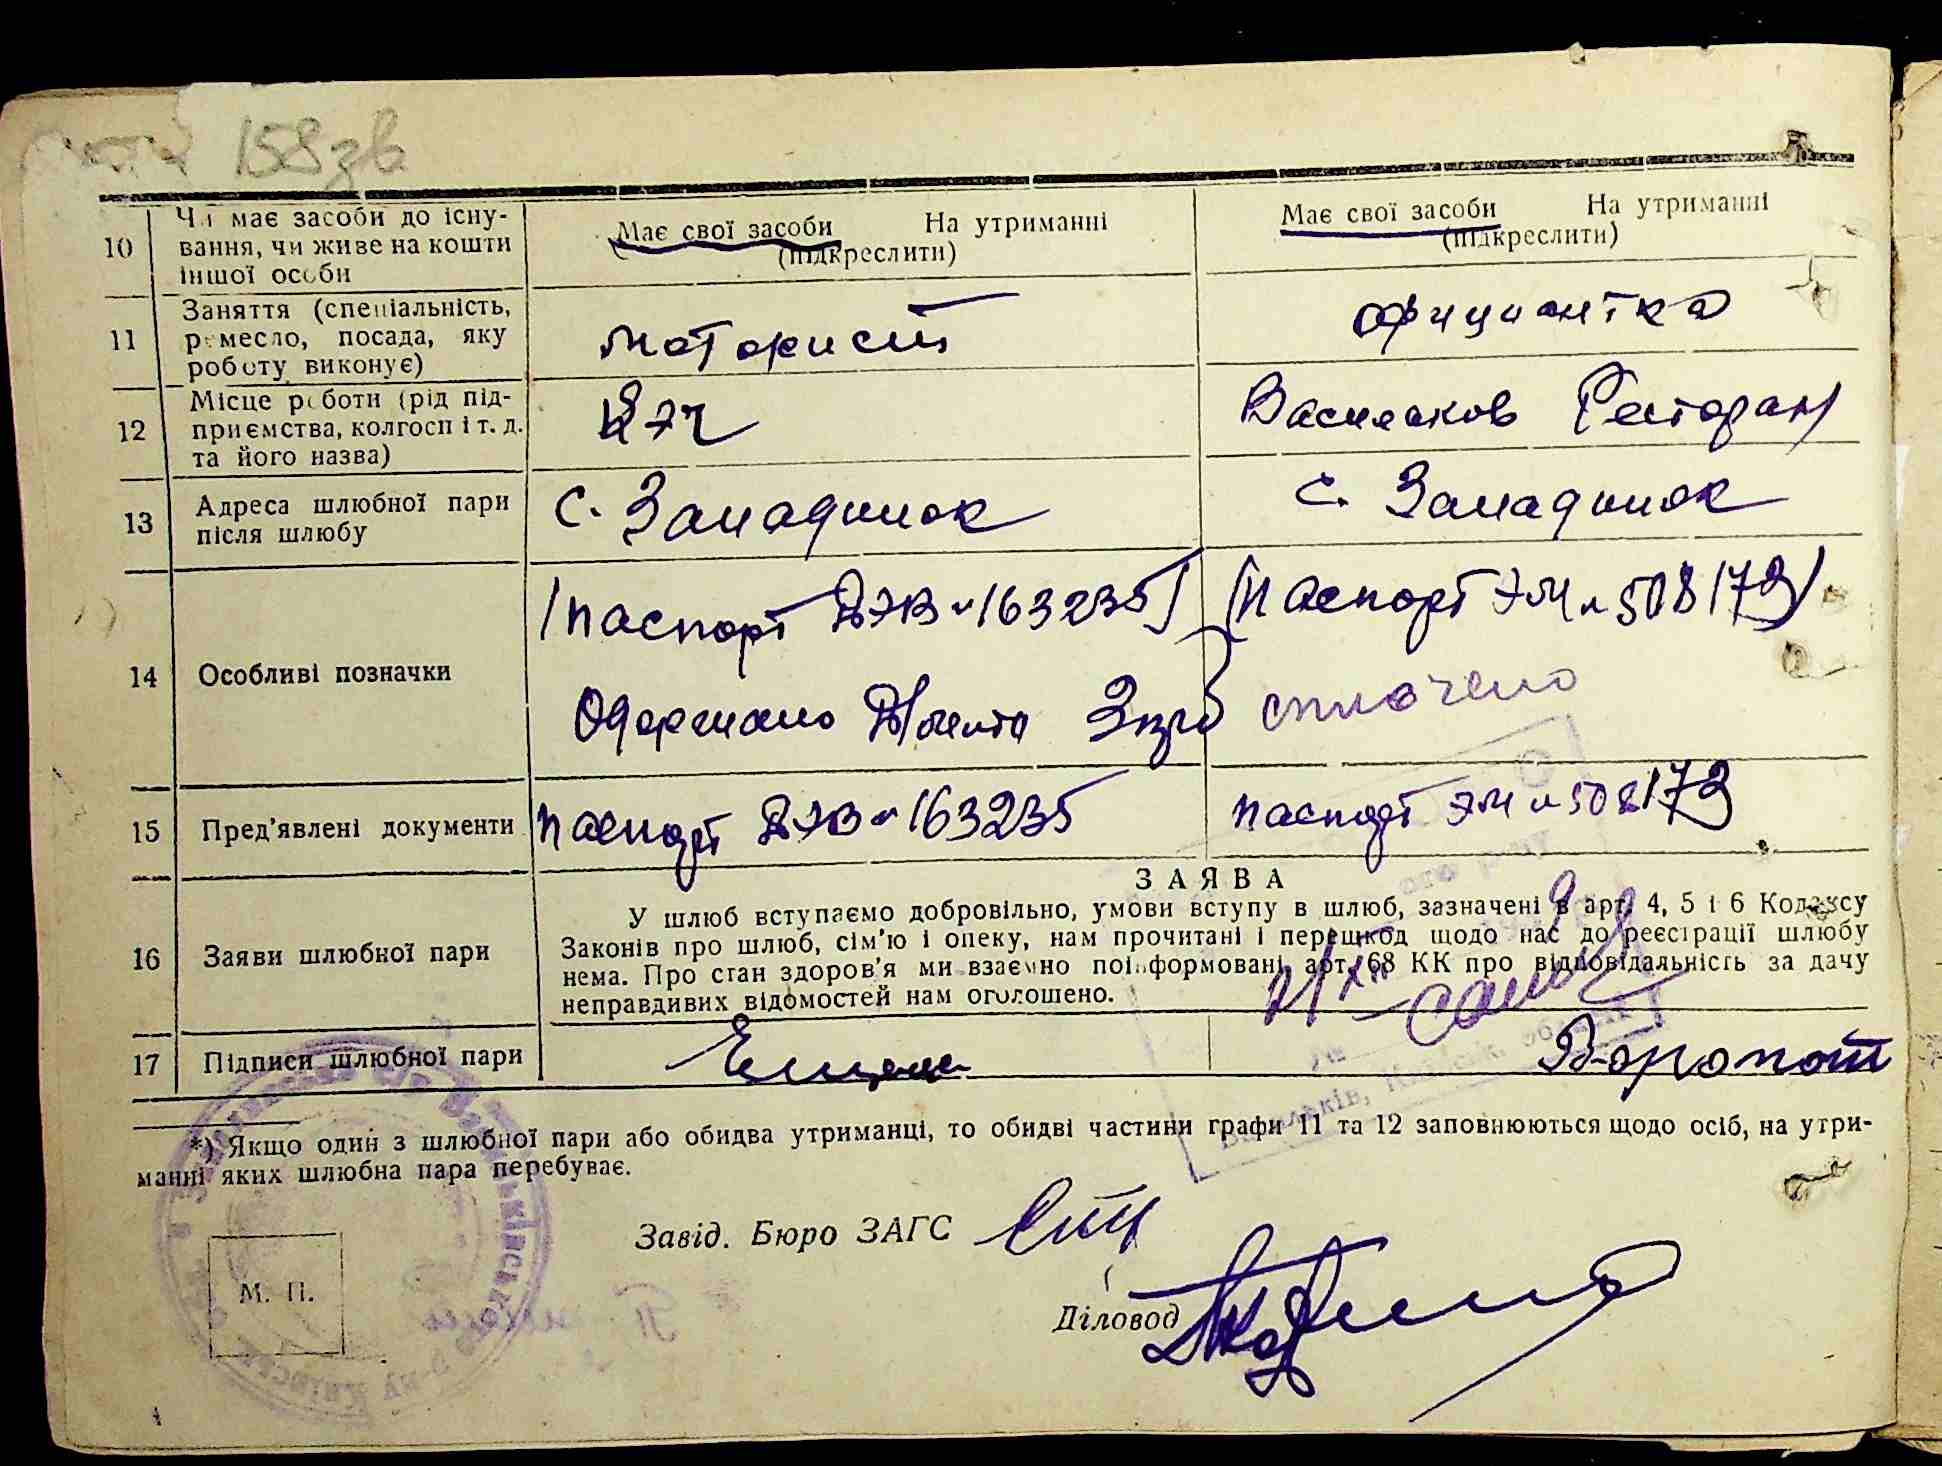 158 зв.
10 Чи має засоби до існування, чи живе на кошти іншої особи
Має свої засоби На утриманні
(підкреслити)
Має свої засоби На утриманні
(підкреслити)
11 Заняття (спеціальність, ремесло, посада, яку роботу виконує)
моторист
официантка
12 Місце роботи (рід підприємства, колгосп і т. д. та його назва)
КЭЧ
Васильков Ресторан
13 Адреса шлюбної пари після шлюбу
с. Западинок
с. Западинок
14 Особливі позначки
/паспорт № 163235/
/Паспорт № 508173/
Одержано 3 крб сплочено
15 Пред'явлені документи
паспорт № 163235
паспорт № 508173
16 Заяви шлюбної пари
ЗАЯВА
У шлюб вступаємо добровільно, умови вступу в шлюб, зазначені в арт. 4, 5 і 6 Кодексу
Законів про шлюб, сім'ю і опеку, нам прочитані і перешкод щодо нас до реєстрації шлюбу
нема. Про стан здоров'я ми взаємно поінформовані, арт. 68 КК про відповідальність за дачу
неправдивих відомостей нам оголошено.
17 Підписи шлюбної пари
*) Якщо один з шлюбної пари або обидва утриманці, то обидві частини графи 11 та 12 заповнюються щодо осіб, на утри-
манні яких шлюбна пара перебуває.
Завід. Бюро ЗАГС
М. П.
Діловод